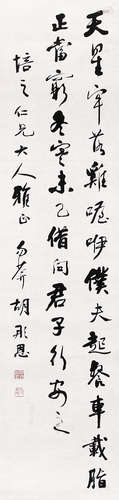 天星牢落雞喔咿僕夫起餐車載脂
正當窮冬寒未已借問君子行安之
培之仁兄大人雅正 勿齋胡彤恩